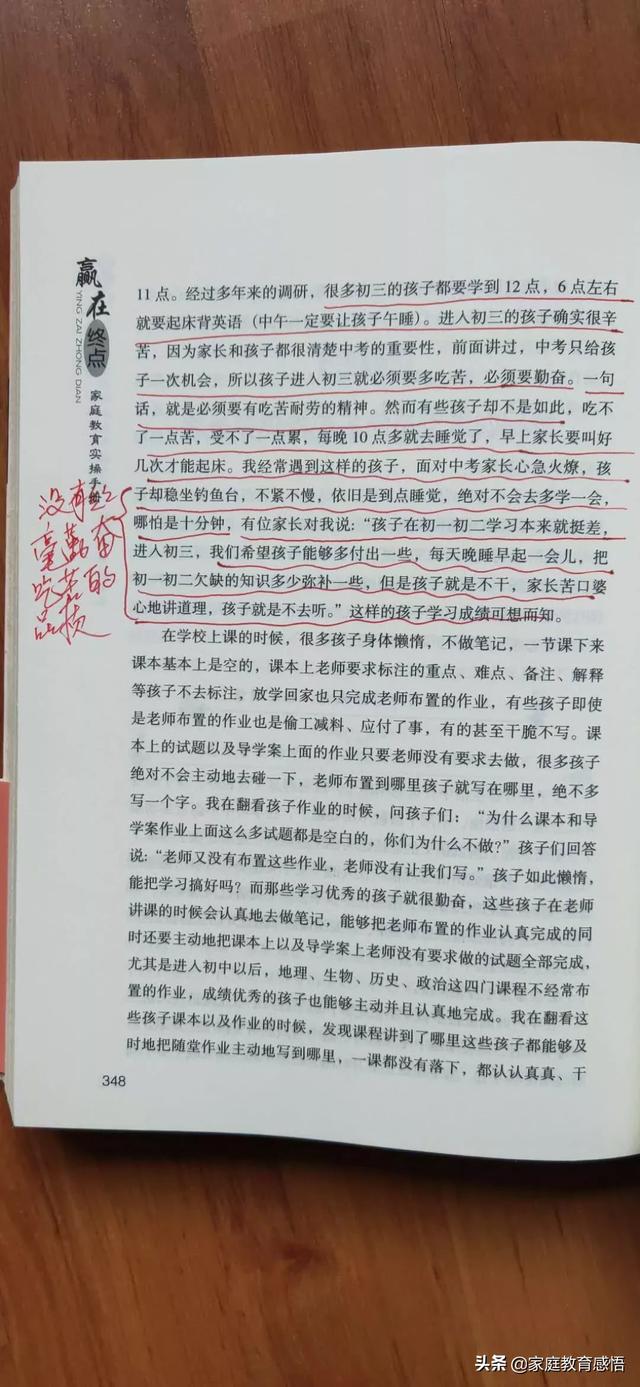 赢在终点
YING ZAI ZHONG DIAN
家庭教育实操手册
11 点。经过多年来的调研，很多初三的孩子都要学到 12 点，6 点左右
就要起床背英语（中午一定要让孩子午睡）。进入初三的孩子确实很辛
苦，因为家长和孩子都很清楚中考的重要性，前面讲过，中考只给孩
子一次机会，所以孩子进入初三就必须要多吃苦，必须要勤奋。一句
话，就是必须要有吃苦耐劳的精神。然而有些孩子却不是如此，吃不
了一点苦，受不了一点累，每晚 10 点多就去睡觉了，早上家长要叫好
几次才能起床。我经常遇到这样的孩子，面对中考家长心急火燎，孩
子却稳坐钓鱼台，不紧不慢，依旧是到点睡觉，绝对不会去多学一会，
哪怕是十分钟，有位家长对我说：“孩子在初一初二学习本来就挺差，
进入初三，我们希望孩子能够多付出一些，每天晚睡早起一会儿，把
初一初二欠缺的知识多少弥补一些，但是孩子就是不干，家长苦口婆
心地讲道理，孩子就是不去听。”这样的孩子学习成绩可想而知。
没有
毫勤奋
吃苦的
品质
在学校上课的时候，很多孩子身体懒惰，不做笔记，一节课下来
课本基本上是空的，课本上老师要求标注的重点、难点、备注、解释
等孩子不去标注，放学回家也只完成老师布置的作业，有些孩子即使
是老师布置的作业也是偷工减料、应付了事，有的甚至干脆不写。课
本上的试题以及导学案上面的作业只要老师没有要求去做，很多孩子
绝对不会主动地去碰一下，老师布置到哪里孩子就写在哪里，绝不多
写一个字。我在翻看孩子作业的时候，问孩子们：“为什么课本和导
学案作业上面这么多试题都是空白的，你们为什么不做?”孩子们回答
说：“老师又没有布置这些作业，老师没有让我们写。”孩子如此懒惰，
能把学习搞好吗？而那些学习优秀的孩子就很勤奋，这些孩子在老师
讲课的时候会认真地去做笔记，能够把老师布置的作业认真完成的同
时还要主动地把课本上以及导学案上老师没有要求做的试题全部完成，
尤其是进入初中以后，地理、生物、历史、政治这四门课程不经常布
置的作业，成绩优秀的孩子也能够主动并且认真地完成。我在翻看这
些孩子课本以及作业的时候，发现课程讲到了哪里这些孩子都能够及
时地把随堂作业主动地写到哪里，一课都没有落下，都认认真真、干
348
头条 @家庭教育感悟